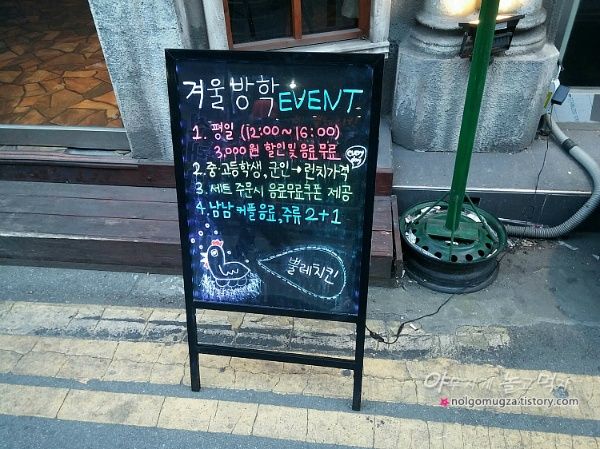 겨울방학 EVENT
1. 평일 (12:00~16:00)
3,000원 할인 및 음료무료
2. 중·고등학생, 군인→런치가격
3. 세트 주문시 음료무료쿠폰 제공
4. 남남 커플음료, 주류 2+1
뿔레치킨
nolgomugza.tistory.com